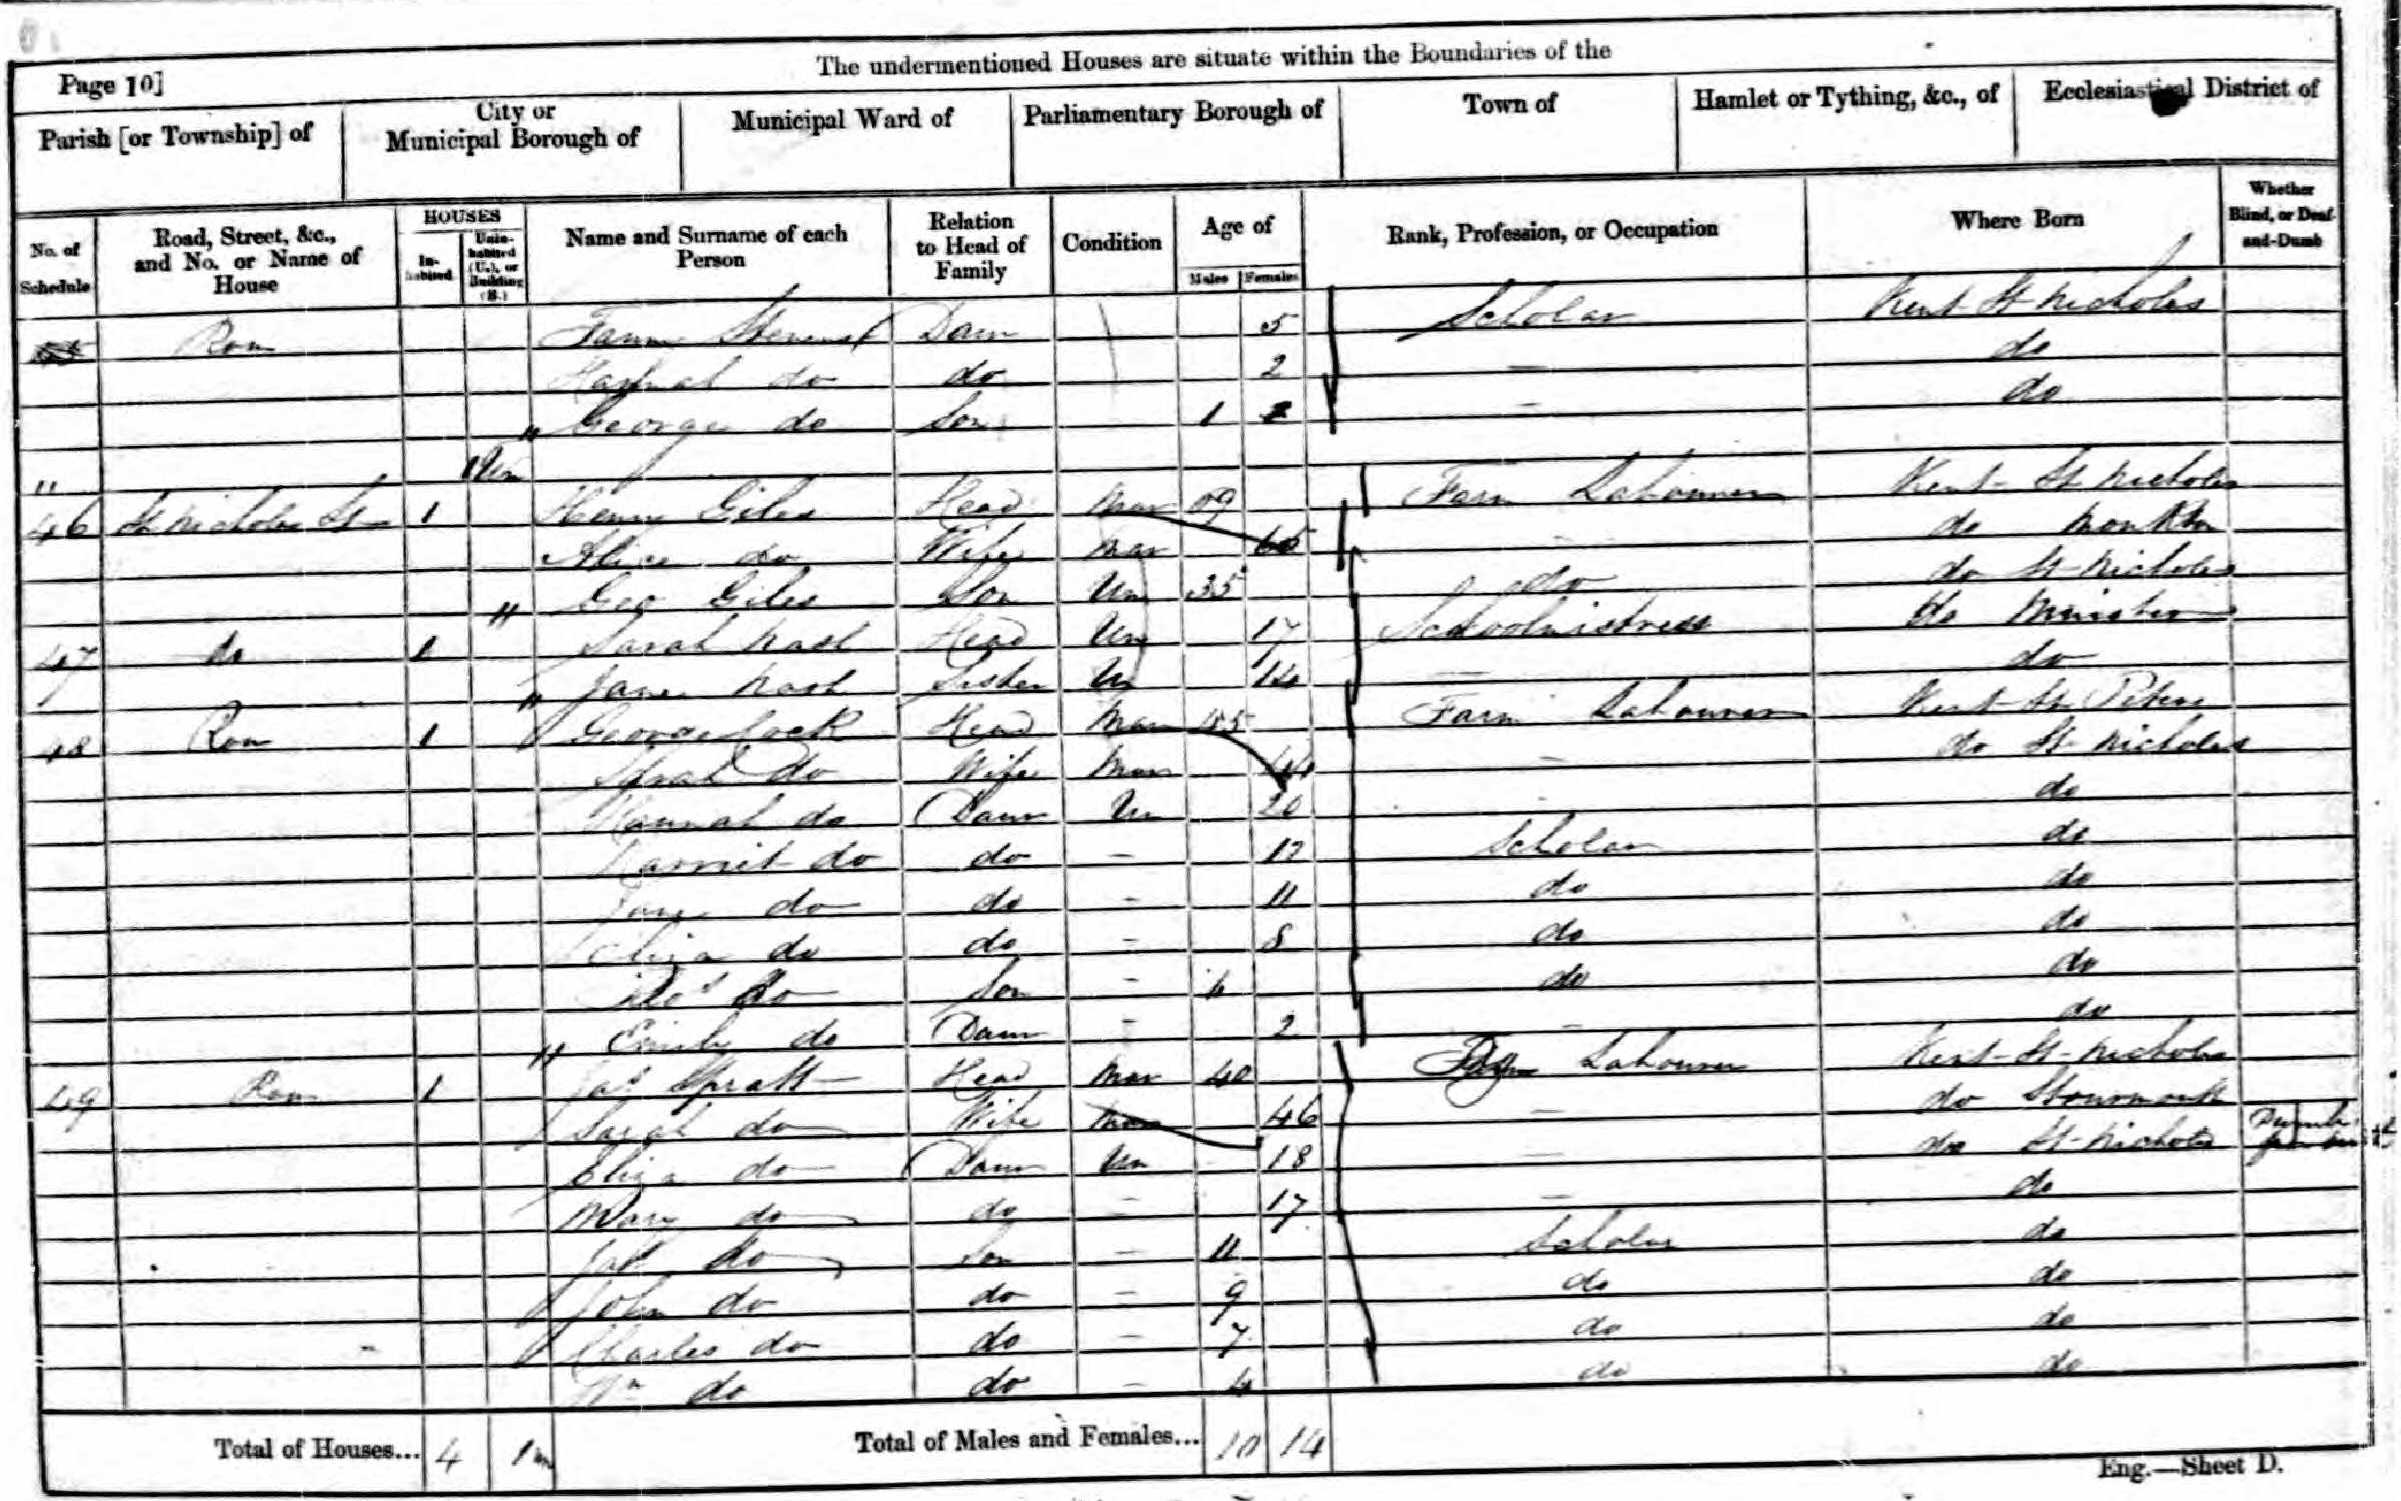 The undermentioned Houses are situate within the Boundaries of the
Page 10]
Parish [or Township] of
City or Municipal Borough of
Municipal Ward of
Parliamentary Borough of
Town of
Hamlet or Tything, &c., of
Ecclesiastical District of
No. of Schedule
Road, Street, &c., and No. or Name of House
HOUSES
In-habited
Unin-habited (U.), or Building (B.)
Name and Surname of each Person
Relation to Head of Family
Condition
Age of
Males
Females
Rank, Profession, or Occupation
Where Born
Whether Blind, or Deaf-and-Dumb
Daur 5 Scholar Kent St Nicholas
do do 2 — do
" George do Son 1 — do
" 1 Un
46 St Nicholas St 1 Henry Giles Head Mar Farm Labourer Kent St Nicholas
Alice do Wife Mar — do Monkton
" Geo Giles Son Un 35 do do St Nicholas
47 do 1 Sarah Nash Head Un 17 Schoolmistress do Minster
" Jane Nash Sister Un 14 — do
48 1 George Cock Head Mar 45 Farm Labourer Kent St Peters
Sarah do Wife Mar 44 — do St Nicholas
Hannah do Daur Un 20 — do
Harriet do do — Scholar do
Jane do do — 11 do do
Eliza do do — 8 do do
Thos do Son — 6 do do
" Emily do Daur — 2 — do
49 1 Jas Spratt Head Mar 40 Labourer Kent St Nicholas
Sarah do Wife Mar 46 — do Stourmouth
Eliza do Daur Un 18 — do St Nicholas Dumb from birth
Mary do do — 17 — do
Jas do Son — 11 Scholar do
John do do — 9 do do
Charles do do — 7 do do
Wm do do — 4 do do
Total of Houses... 4 1 un
Total of Males and Females... 10 14
Eng.—Sheet D.